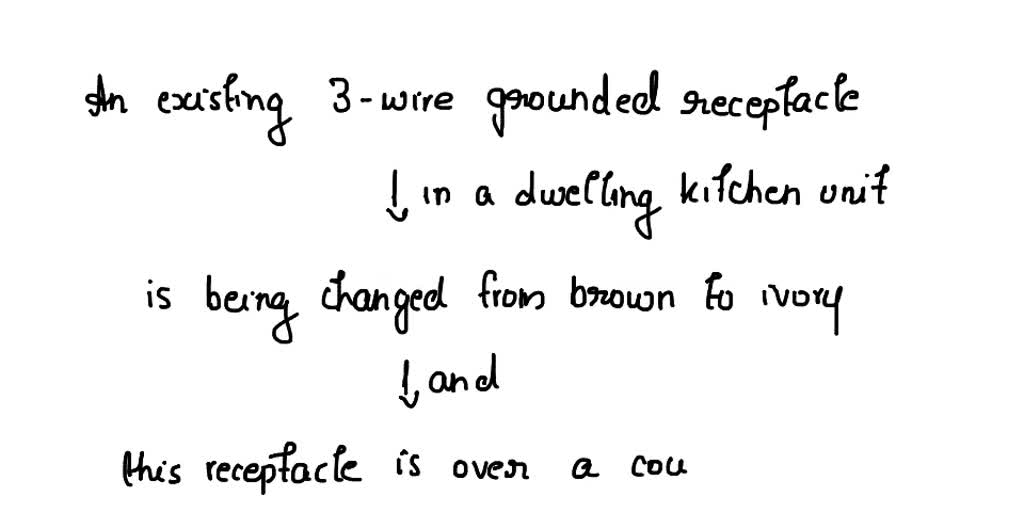 An existing 3-wire grounded receptacle
↓ in a dwelling kitchen unit
is being changed from brown to ivory
↓ and
this receptacle is over a cou